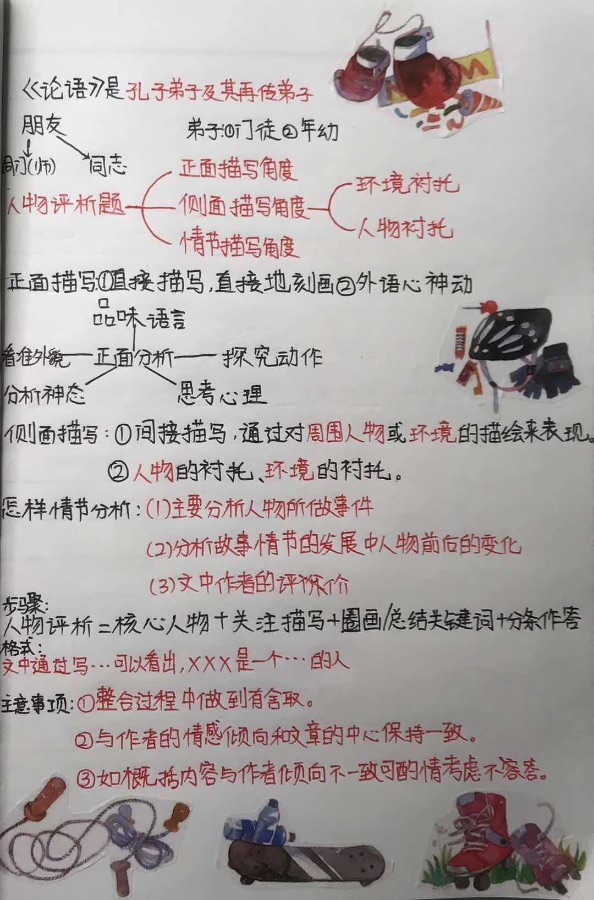 《论语》是孔子弟子及其再传弟子
朋友 弟子①门徒②年幼
同门(师) 同志
正面描写角度
人物评析题 侧面描写角度 环境衬托
人物衬托
情节描写角度
正面描写①直接描写,直接地刻画②外语心神动
品味语言
看准外貌 正面分析 探究动作
分析神态 思考心理
侧面描写:①间接描写,通过对周围人物或环境的描绘来表现。
②人物的衬托、环境的衬托。
怎样情节分析:(1)主要分析人物所做事件
(2)分析故事情节的发展中人物前后的变化
(3)文中作者的评价
步骤:
人物评析=核心人物+关注描写+圈画/总结关键词+分条作答
格式:
文中通过写…可以看出,XXX是一个…的人
注意事项:①整合过程中做到有舍取。
②与作者的情感倾向和文章的中心保持一致。
③如概括内容与作者倾向不一致可酌情考虑不答答。